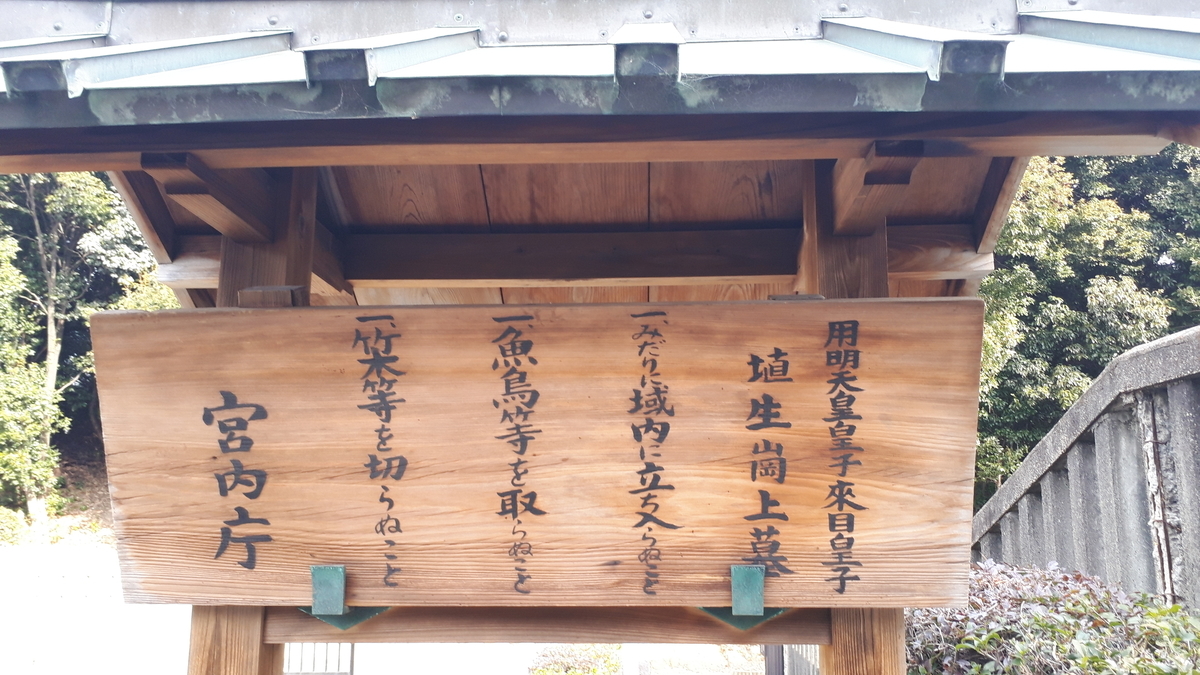 用明天皇皇子來目皇子
埴生崗上墓
一、みだりに域内に立ち入らぬこと
一、魚鳥等を取らぬこと
一、竹木等を切らぬこと
宮内庁